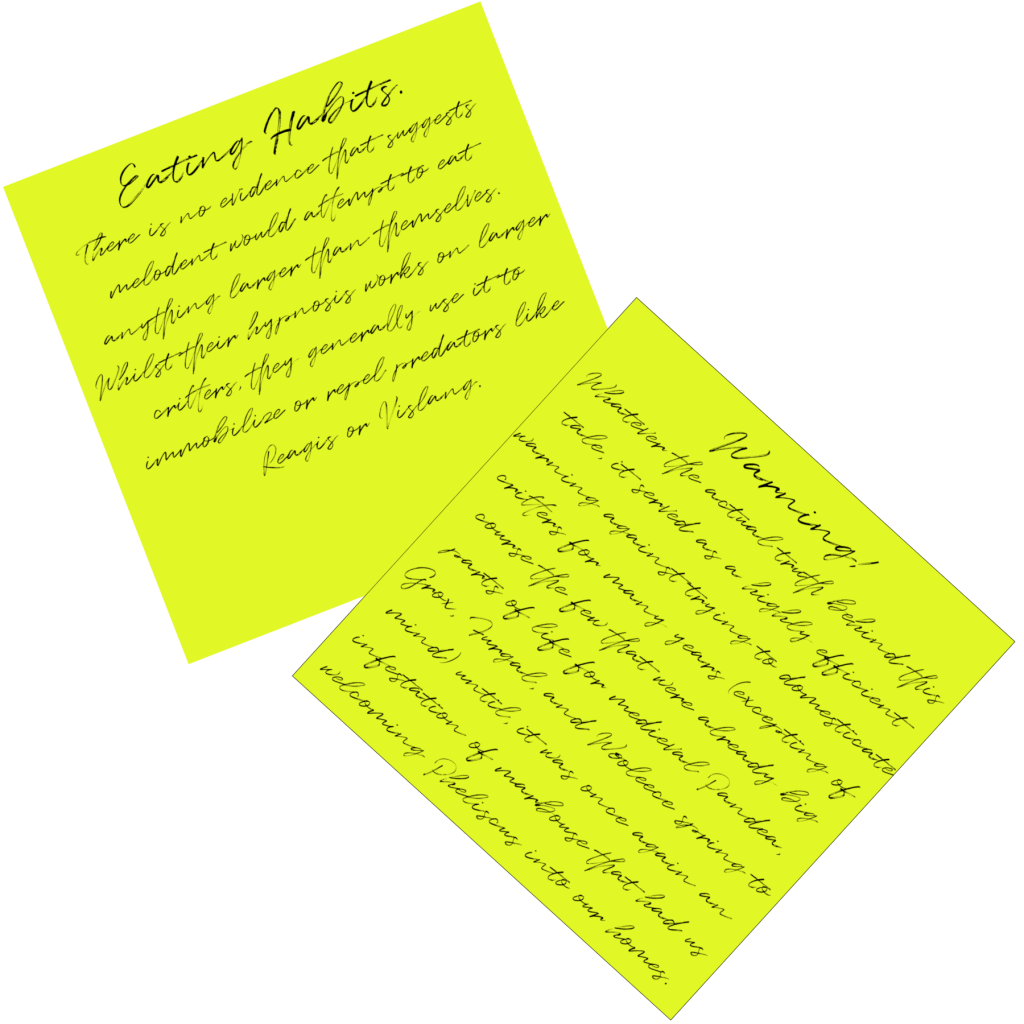 Eating Habits.
There is no evidence that suggests
melodent would attempt to eat
anything larger than themselves.
Whilst their hypnosis works on larger
critters, they generally use it to
immobilize or repel predators like
Reagis or Vislang.
Warning!
Whatever the actual truth behind this
tale, it served as a highly efficient
warning against trying to domesticate
critters for many years (excepting of
course the few that were already big
parts of life for medieval Pandea,
Grox, Furgal, and Wooleece spring to
mind) until, it was once again an
infestation of marbouse that had us
welcoming Pheliscus into our homes.